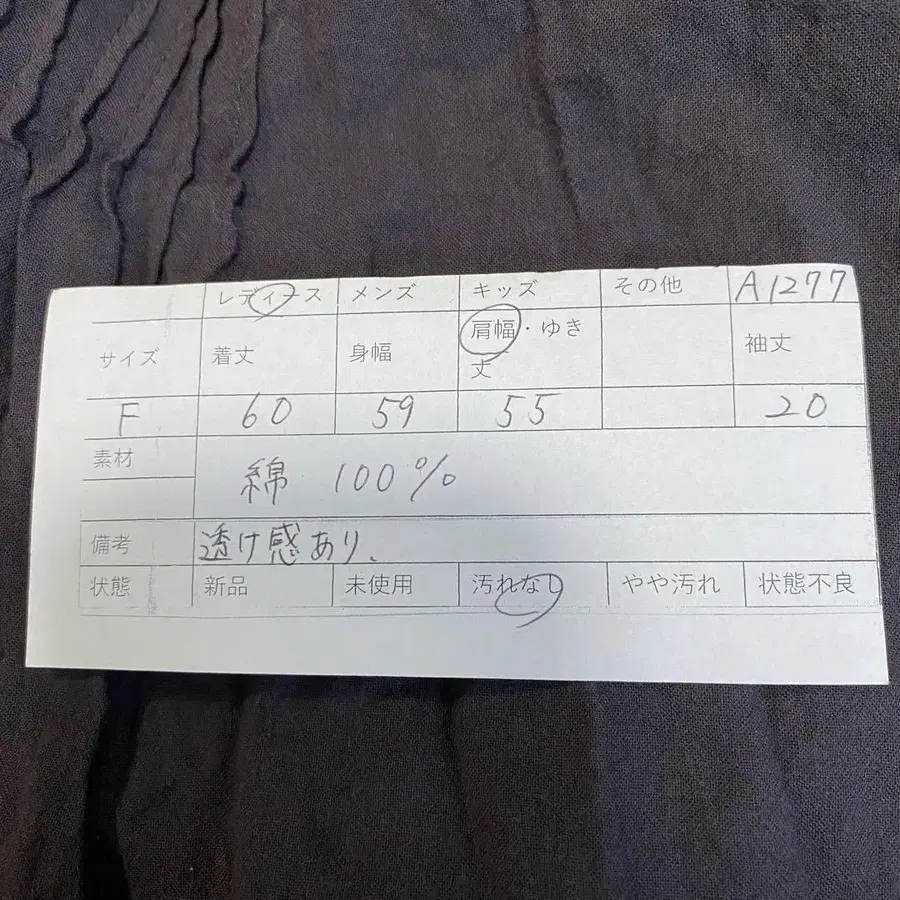 レディース メンズ キッズ その他 A1277
サイズ 着丈 身幅 肩幅・ゆき丈 袖丈
F 60 59 55 20
素材 綿 100%
備考 透け感あり、
状態 新品 未使用 汚れなし やや汚れ 状態不良